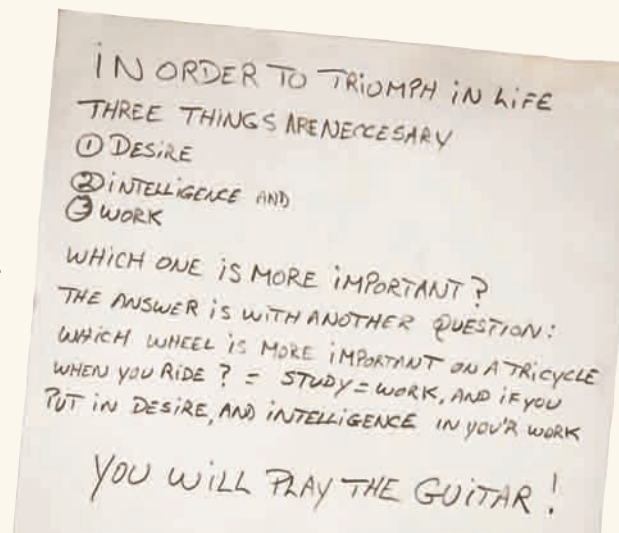 iN ORDER TO TRiUMPH iN LiFE
THREE THINGS ARE NECCESARY
① DESiRE
② iNTELLiGENCE AND
③ WORK
WHiCH ONE iS MORE iMPORTANT?
THE ANSWER iS WiTH ANOTHER QUESTION:
WHiCH WHEEL iS MORE iMPORTANT ON A TRiCYCLE
WHEN YOU RiDE? = STUDY = WORK, AND iF YOU
PUT iN DESiRE, AND iNTELLiGENCE iN YOU'R WORK
YOU WiLL PLAY THE GUiTAR!